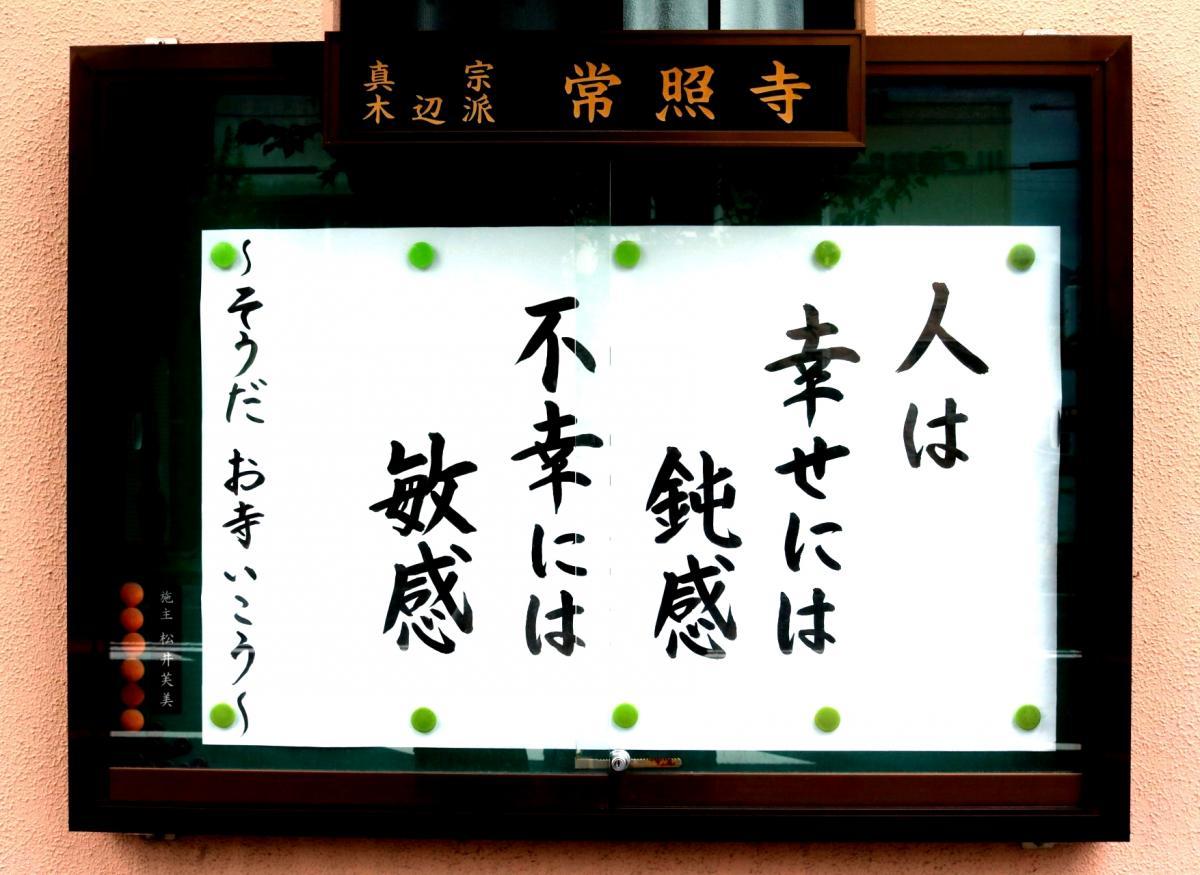 真宗
木辺派
常照寺
人は
幸せには
鈍感
不幸には
敏感
～そうだ お寺いこう～
施主 松井芙美